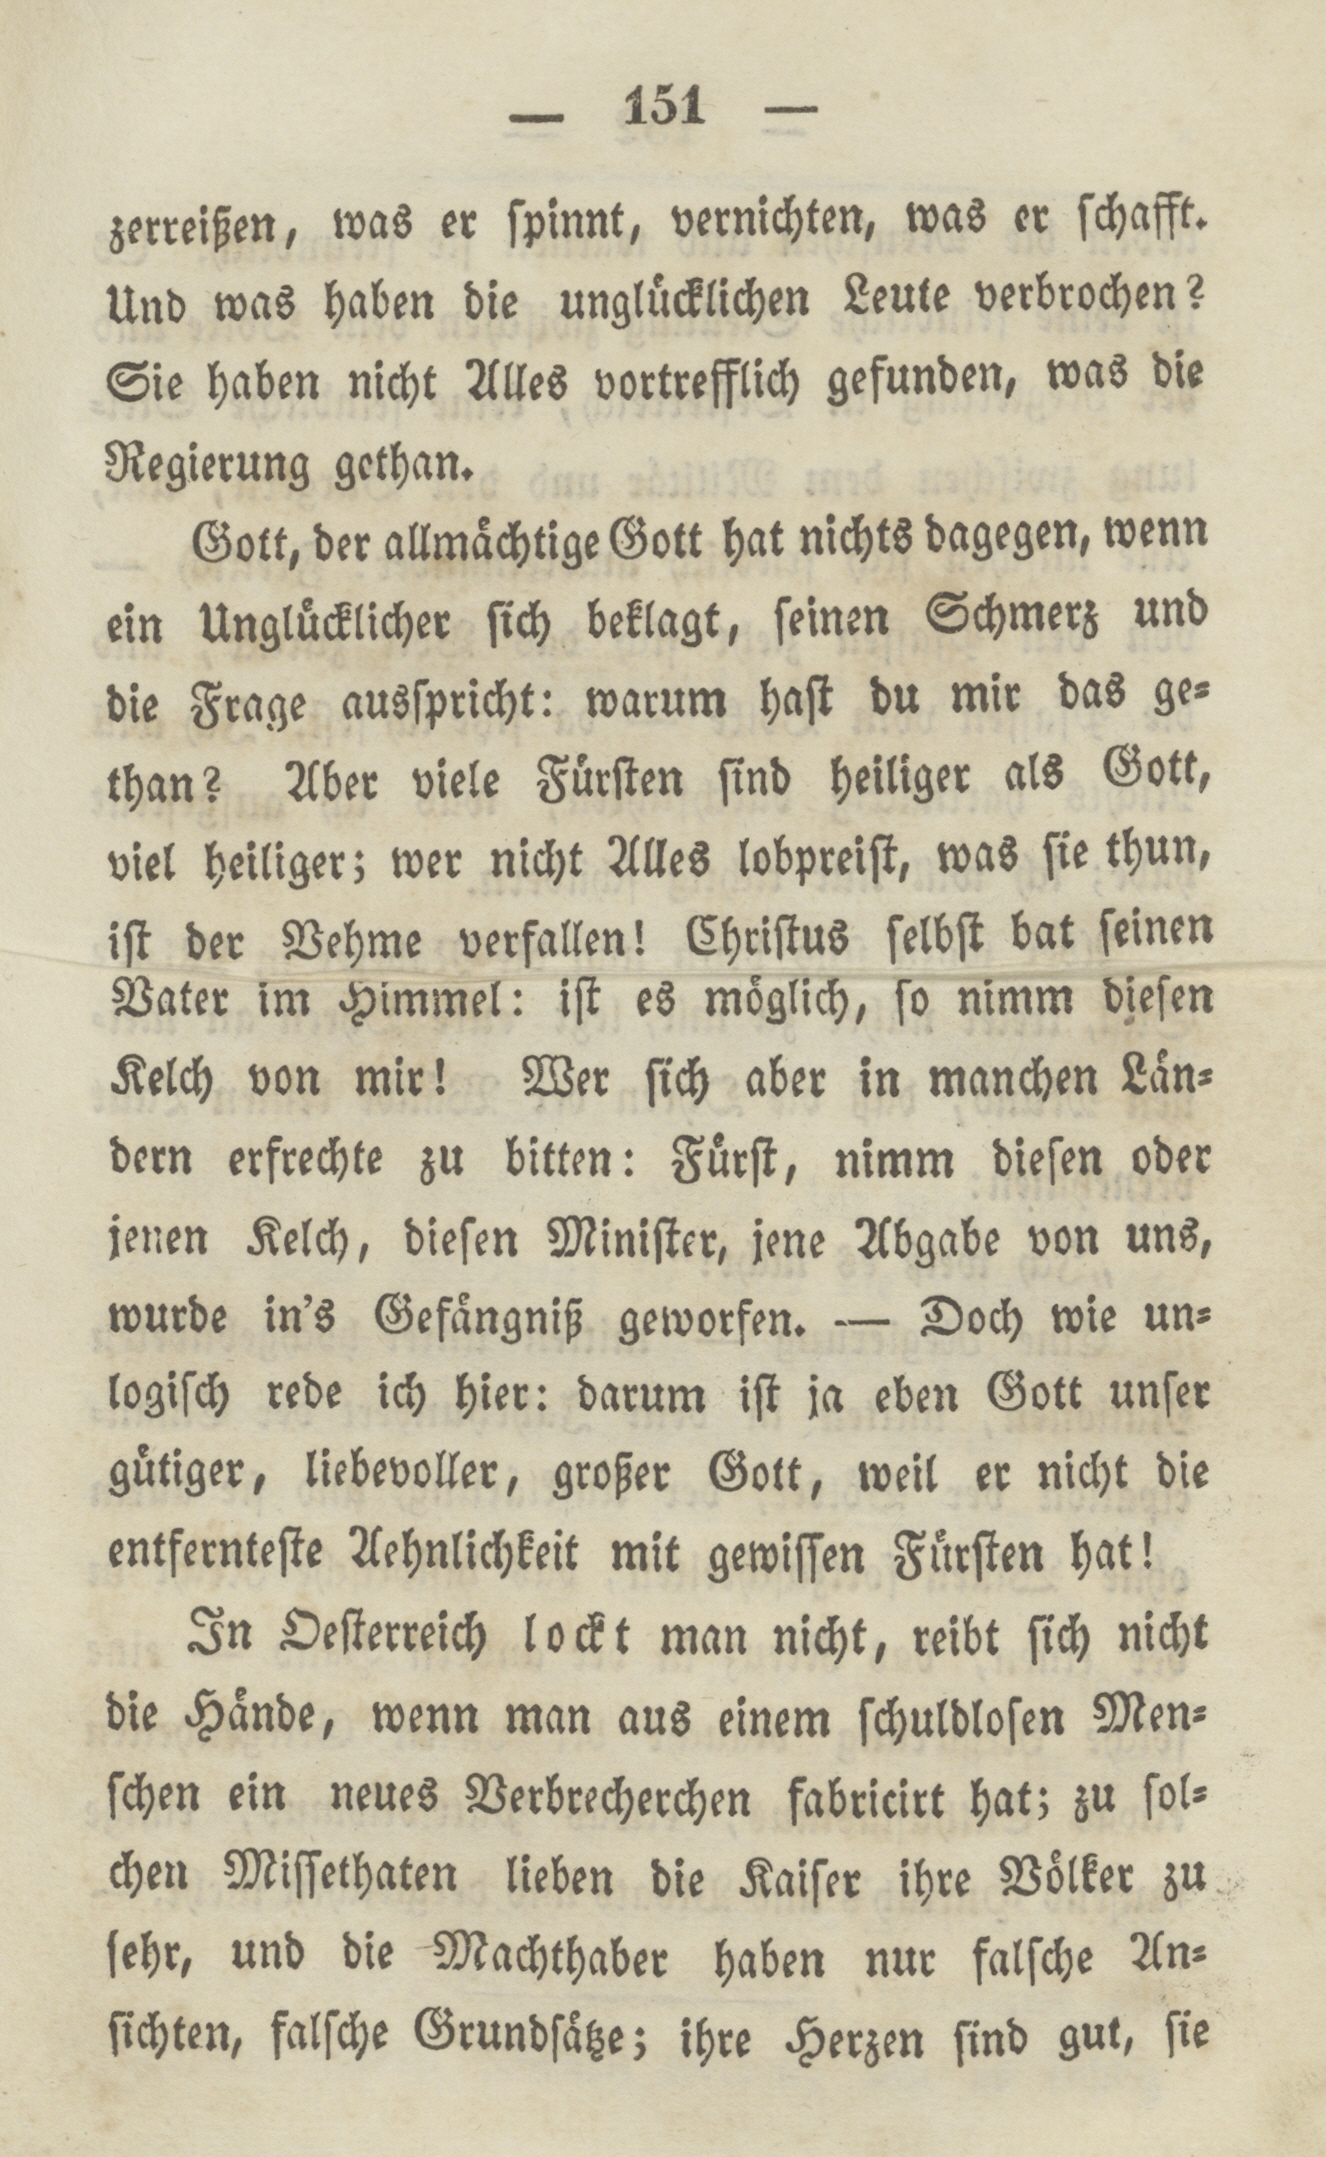 — 151 —
zerreißen, was er spinnt, vernichten, was er schafft.
Und was haben die unglücklichen Leute verbrochen?
Sie haben nicht Alles vortrefflich gefunden, was die
Regierung gethan.
Gott, der allmächtige Gott hat nichts dagegen, wenn
ein Unglücklicher sich beklagt, seinen Schmerz und
die Frage ausspricht: warum hast du mir das ge-
than? Aber viele Fürsten sind heiliger als Gott,
viel heiliger; wer nicht Alles lobpreist, was sie thun,
ist der Vehme verfallen! Christus selbst bat seinen
Vater im Himmel: ist es möglich, so nimm diesen
Kelch von mir! Wer sich aber in manchen Län-
dern erfrechte zu bitten: Fürst, nimm diesen oder
jenen Kelch, diesen Minister, jene Abgabe von uns,
wurde in's Gefängniß geworfen. — Doch wie un-
logisch rede ich hier: darum ist ja eben Gott unser
gütiger, liebevoller, großer Gott, weil er nicht die
entfernteste Aehnlichkeit mit gewissen Fürsten hat!
In Oesterreich lockt man nicht, reibt sich nicht
die Hände, wenn man aus einem schuldlosen Men-
schen ein neues Verbrecherchen fabricirt hat; zu sol-
chen Missethaten lieben die Kaiser ihre Völker zu
sehr, und die Machthaber haben nur falsche An-
sichten, falsche Grundsätze; ihre Herzen sind gut, sie